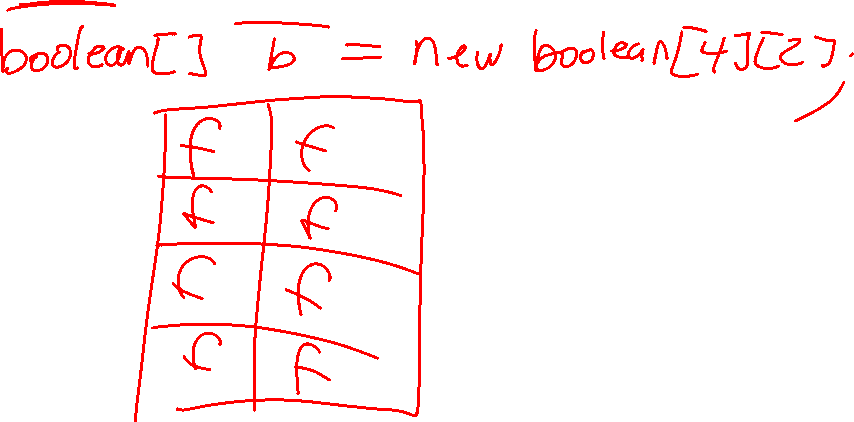 boolean[] b = new boolean[4][2];
f f
f f
f f
f f